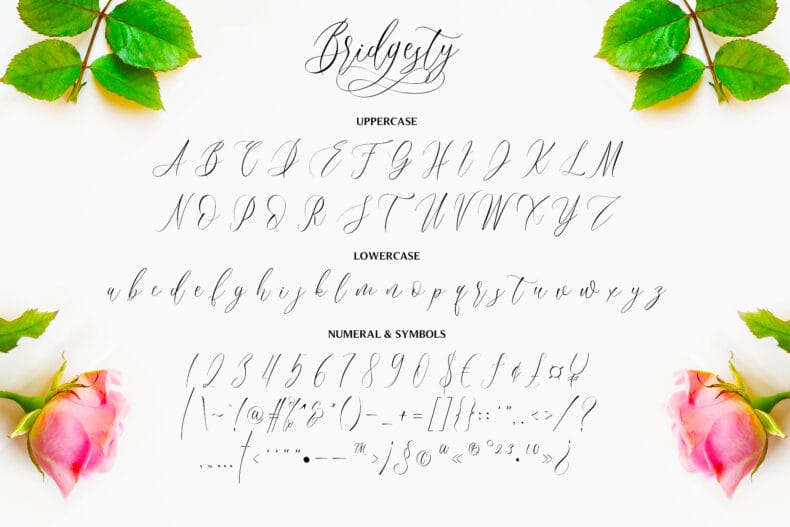 Bridgesty
UPPERCASE
A B C D E F G H I J K L M
N O P Q R S T U V W X Y Z
LOWERCASE
a b c d e f g h i j s k l m n o p q r s t u v w x y z
NUMERAL & SYMBOLS
1 2 3 4 5 6 7 8 9 0 $ € ƒ ¢ £ ¤ ¥
| \ ~ ` ! @ # % ^ & * ( ) – _ + = [ ] { } : ; ' " , . < > / ?
† ‹ ' ' " " • – — ™ › ¡ § © ª « ® ° 2 3 . 1 0 » ¿